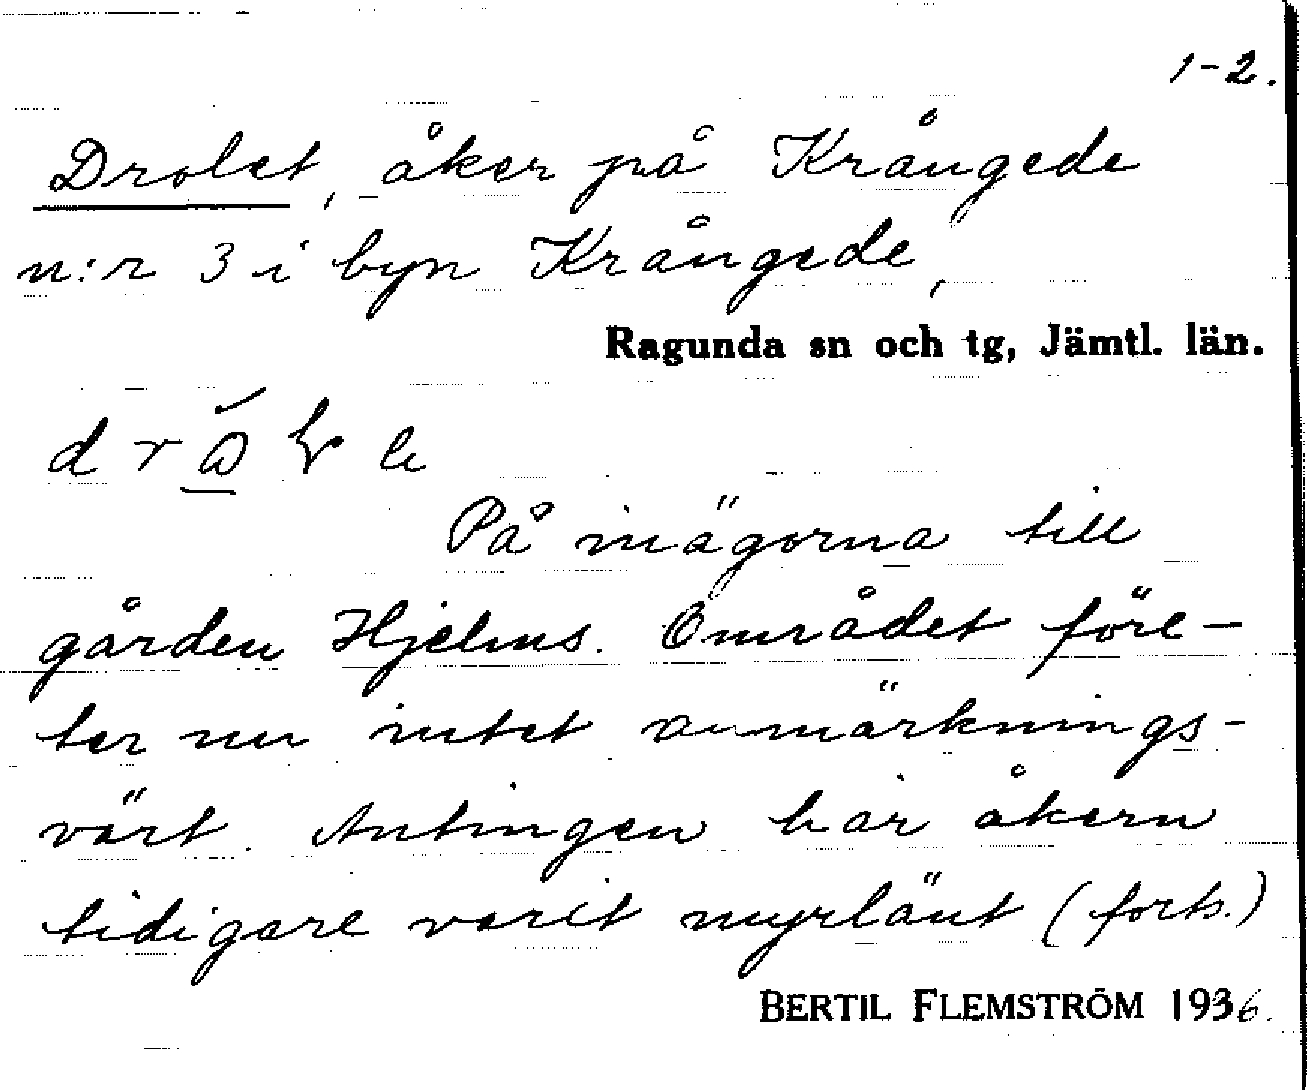 1-2.
Drolet, åker på Krångede
n:r 3 i byn Krångede,
Ragunda sn och tg, Jämtl. län.
På inägorna till
gården Hjelms. Området före-
ter nu intet anmärknings-
värt. Antingen har åkern
tidigare varit myrlänt (forts.)
BERTIL FLEMSTRÖM 1936.